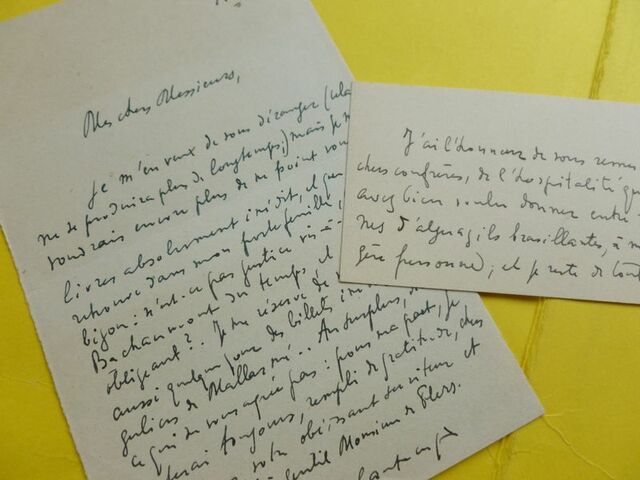 Mes chers Messieurs,
Je m'en veux de vous déranger (cela
ne se produira plus de longtemps,) mais je m'
voudrais encore plus de ne point vous
livres absolument inédit, et que
retrouve dans mon portefeuille,
bijou: n'est-ce pas justice vis-à-
Bachaumont du temps, et
obligeant?.. Je me réserve de
aussi quelque jour des billets
guliers de Mallarmé.. Au surplus,
ce qui ne vous agrée pas: pour ma part, je
serai toujours, rempli de gratitude, chers
votre obéissant serviteur et
gentil Monsieur de Flers.
J'ai l'honneur de vous remer
chers confrères, de l'hospitalité que
avez bien voulu donner entre
nes d'alguazils brasillantes, à m
gère personne), et je reste de tout